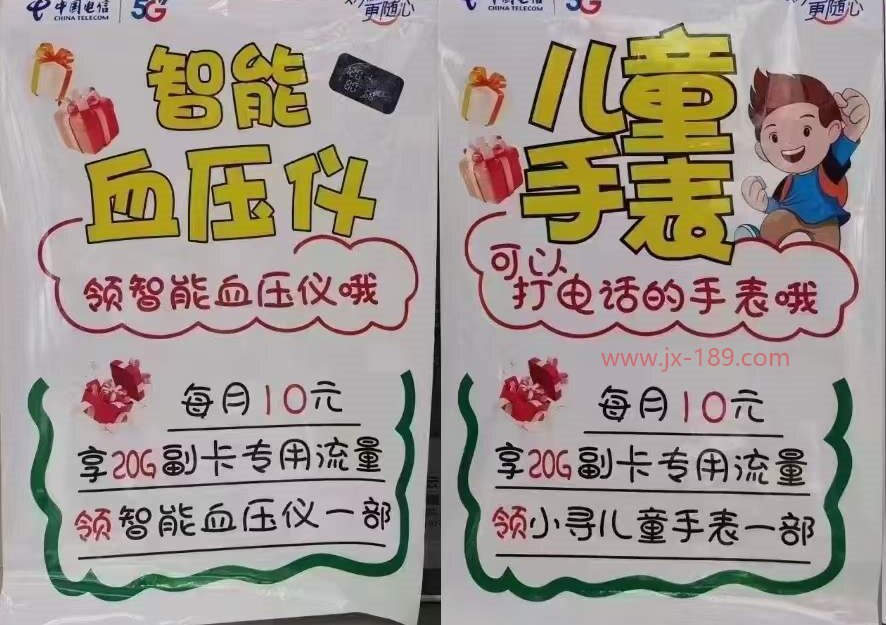 中国电信
CHINA TELECOM
5G
更随心
智能
血压仪
领智能血压仪哦
每月10元
享20G副卡专用流量
领智能血压仪一部
中国电信
CHINA TELECOM
5G
更随心
儿童
手表
可以
打电话的手表哦
www.jx-189.com
每月10元
享20G副卡专用流量
领小寻儿童手表一部